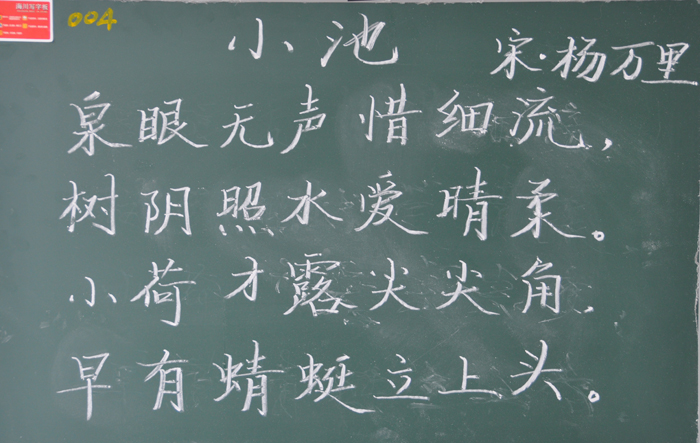 004
小池
宋·杨万里
泉眼无声惜细流，
树阴照水爱晴柔。
小荷才露尖尖角，
早有蜻蜓立上头。